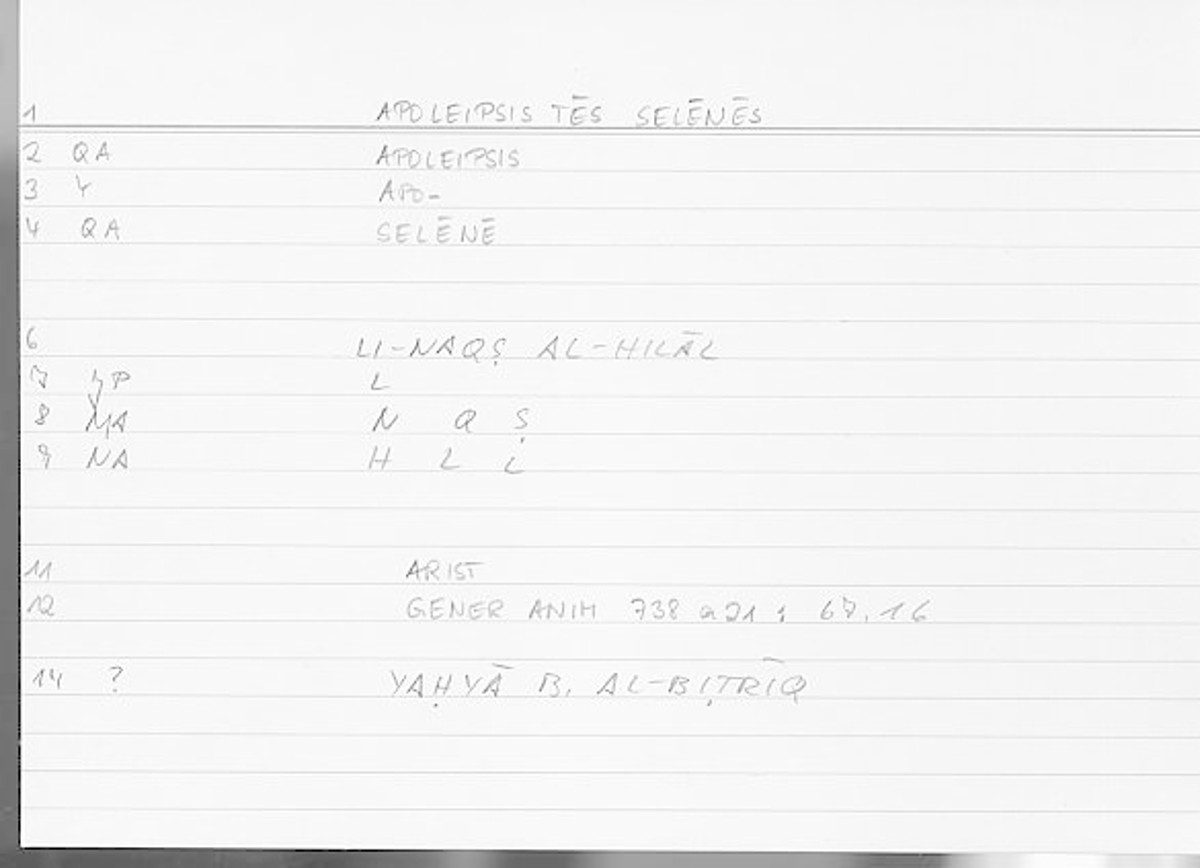 1 APOLEIPSIS TĒS SELĒNĒS
2 QA APOLEIPSIS
3 APO-
4 QA SELĒNĒ
6 LI-NAQṢ AL-HILĀL
7 L
8 N Q Ṣ
9 NA H L L
11 ARIST
12 GENER ANIM 738 a 21 ; 67.16
14 ? YAḤYĀ B. AL-BIṬRĪQ